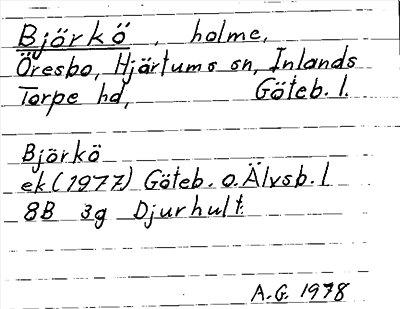 Björkö, holme,
Öresbo, Hjärtums sn, Inlands
Torpe hd, Göteb. l.
Björkö
ek (1977) Göteb. o. Älvsb. l
8B 3g Djurhult.
A.G. 1978